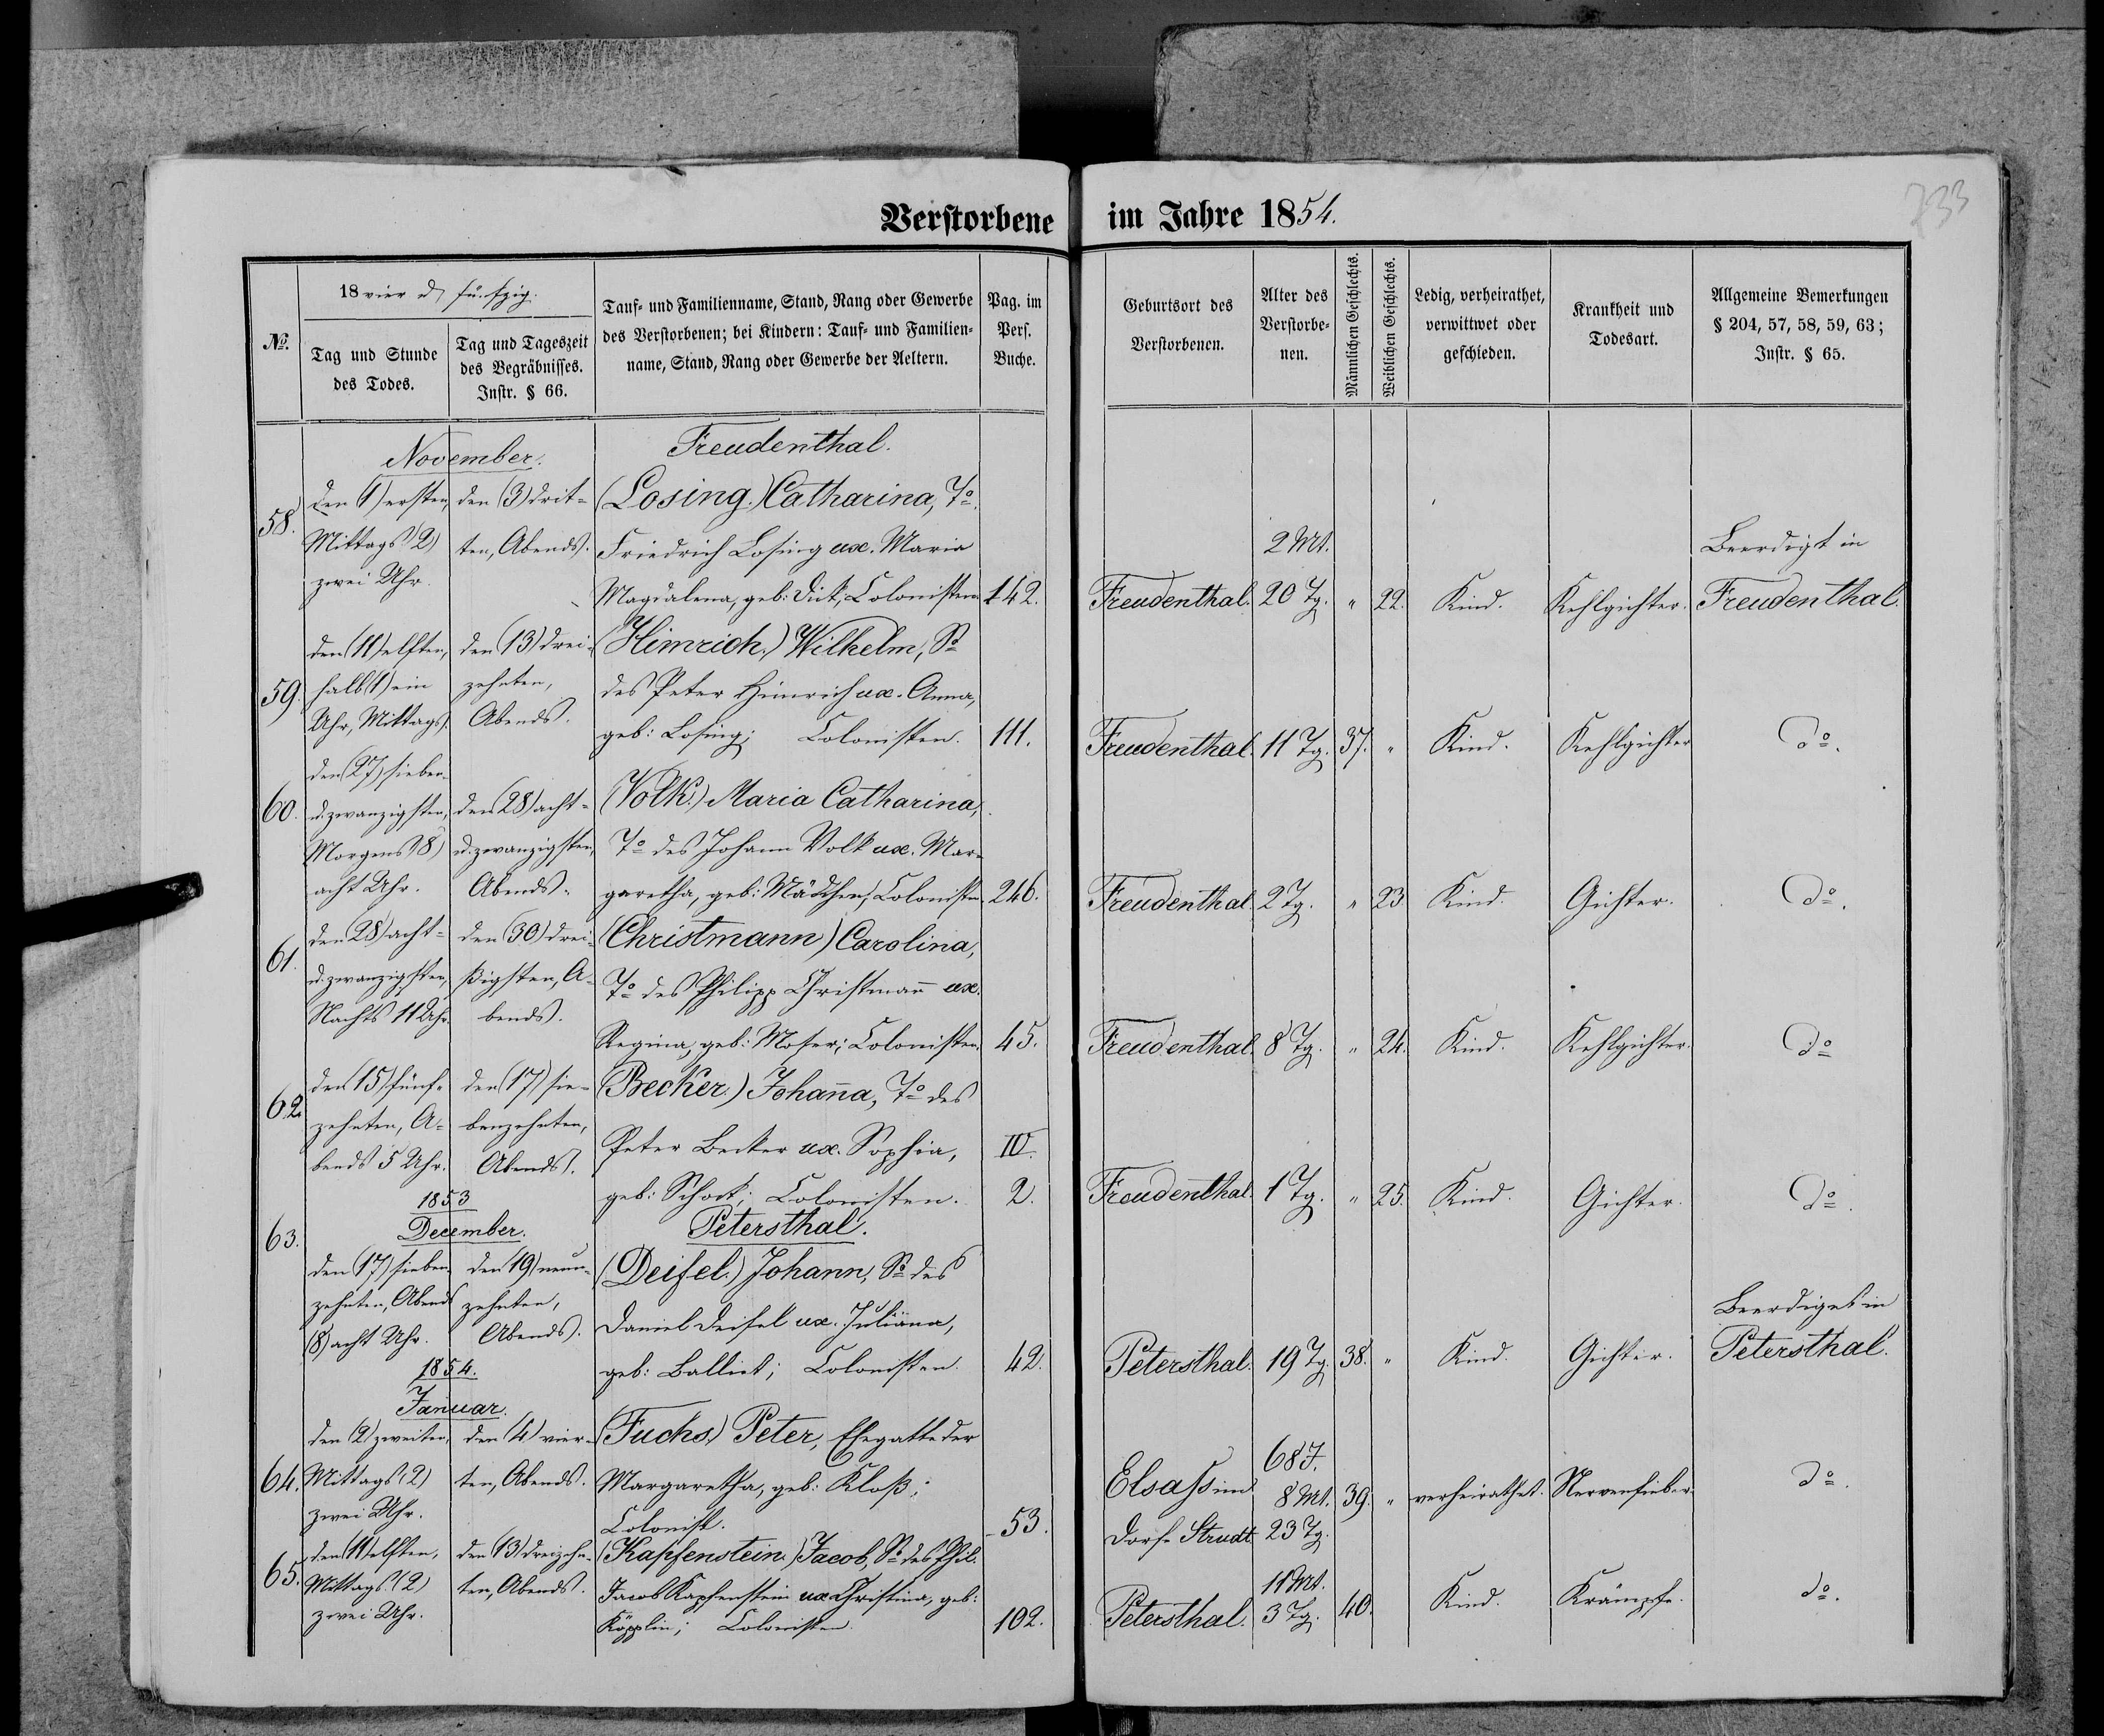 733
Verstorbene im Jahre 1854.
No.
18 vier u fünfzig.
Tag und Stunde
des Todes.
Tag und Tageszeit
des Begräbnisses.
Instr. § 66.
Tauf- und Familienname, Stand, Rang oder Gewerbe
des Verstorbenen; bei Kindern: Tauf- und Familien-
name, Stand, Rang oder Gewerbe der Aeltern.
Pag. im
Pers.
Buche.
Geburtsort des
Verstorbenen.
Alter des
Verstorbe-
nen.
Männlichen Geschlechts.
Weiblichen Geschlechts.
Ledig, verheirathet,
verwittwet oder
geschieden.
Krankheit und
Todesart.
Allgemeine Bemerkungen
§ 204, 57, 58, 59, 63;
Instr. § 65.
November.
Freudenthal.
58.
den (1) ersten,
Mittags (2)
zwei Uhr.
den (3) drit-
ten, Abends.
(Losing.) Catharina, To.
Friedrich Losing ux. Maria
Magdalena, geb: Dick, Colonisten
142.
Freudenthal.
2 Mt.
20 Tg.
" 22.
Kind.
Kehlgichter.
Beerdigt in
Freudenthal.
59.
den (11) elften,
halb (1) ein
Uhr, Mittags.
den (13) drei-
zehnten,
Abends.
(Himrich.) Wilhelm, So
des Peter Himrich ux. Anna,
geb: Losing; Colonisten.
111.
Freudenthal.
11 Tg.
37. "
Kind.
Kehlgichter
Do.
60.
den (27) sieben-
u. zwanzigsten,
Morgens (8)
acht Uhr.
den (28) acht-
u. zwanzigsten,
Abends.
(Volk.) Maria Catharina,
To des Johann Volk ux. Mar-
garetha, geb: Mädchen, Colonisten
246.
Freudenthal.
2 Tg.
" 23.
Kind.
Gichter.
Do.
61.
den (28) acht-
u. zwanzigsten,
Nachts 11 Uhr.
den (30) drei-
ßigsten, A-
bends.
(Christmann) Carolina,
To des Philipp Christmann ux.
Regina, geb: Moser; Colonisten,
45.
Freudenthal.
8 Tg.
" 24.
Kind.
Kehlgichter.
Do
62.
den (15) fünf-
zehnten, A-
bends 5 Uhr.
den (17) sie-
benzehnten,
Abends.
(Becker.) Johanna, To des
Peter Becker ux. Sophia,
geb: Schock; Colonisten.
IV.
2.
Freudenthal.
1 Tg.
" 25.
Kind.
Gichter.
Do.
1853
December.
Petersthal.
63.
den (17) sieben-
zehnten, Abends
(8) acht Uhr.
den (19) neun-
zehnten,
Abends.
(Deifel.) Johann, So des
Daniel Deifel ux. Juliana,
geb: Balliet; Colonisten.
42.
Petersthal.
19 Tg.
38. "
Kind.
Gichter.
Beerdiget in
Petersthal.
1854.
Januar.
64.
den (2) zweiten,
Mittags (2)
zwei Uhr.
den (4) vier-
ten, Abends.
(Fuchs.) Peter, Ehegatte der
Margaretha, geb: Kloß;
Colonist.
53.
Elsass im
Dorfe Strudt
68 J.
8 Mt.
23 Tg.
39. "
verheirathet.
Nervenfieber.
do.
65.
den (11) elften,
Mittags (2)
zwei Uhr.
den (13) dreizehn-
ten, Abends.
(Kapfenstein.) Jacob, So des Phil.
Jacob Kapfenstein ux Christina, geb:
Käpplin; Colonisten
102.
Petersthal.
11 Mt.
3 Tg.
40.
Kind.
Krämpfe.
do.